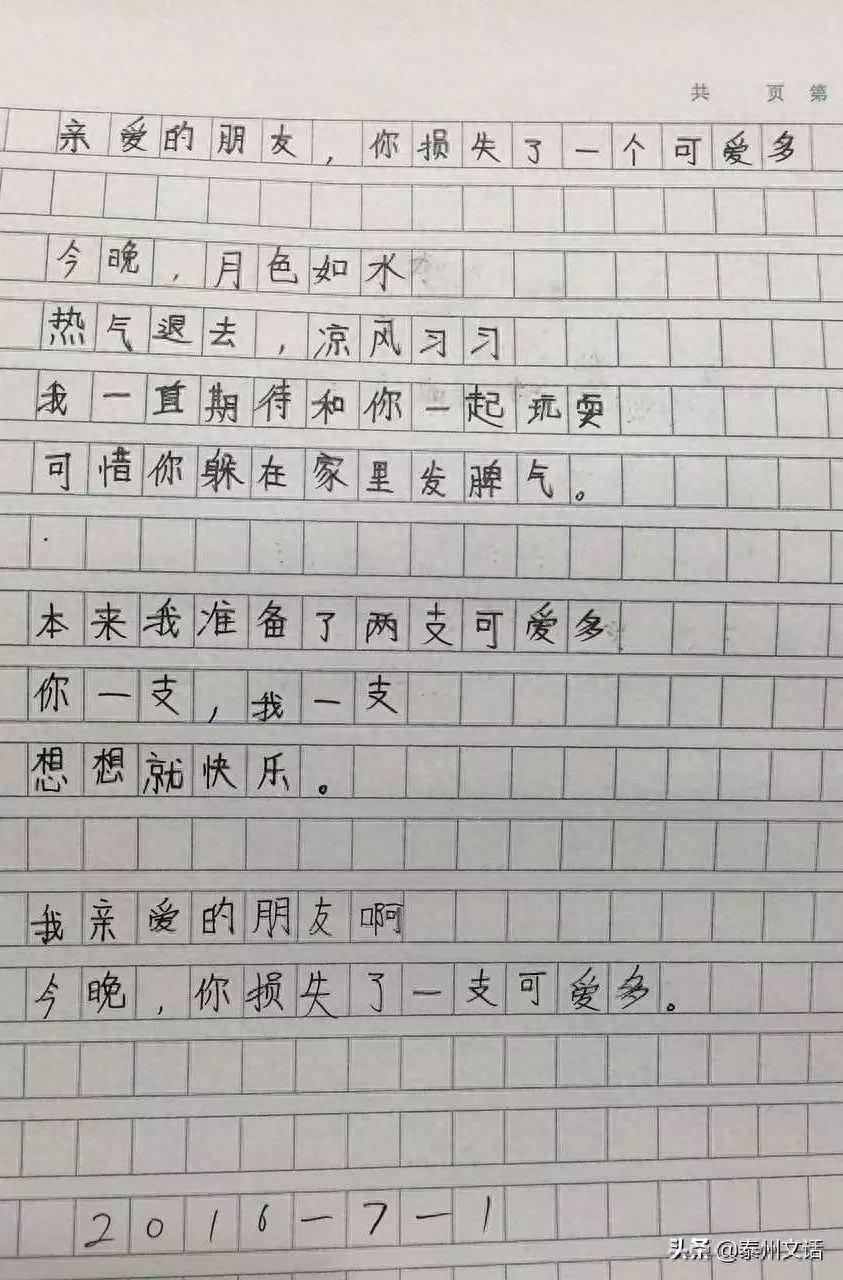 共 页 第
亲爱的朋友，你损失了一个可爱多
今晚，月色如水
热气退去，凉风习习
我一直期待和你一起玩耍
可惜你躲在家里发脾气。
本来我准备了两支可爱多
你一支，我一支
想想就快乐。
我亲爱的朋友啊
今晚，你损失了一支可爱多。
2016-7-1
头条 @泰州文话